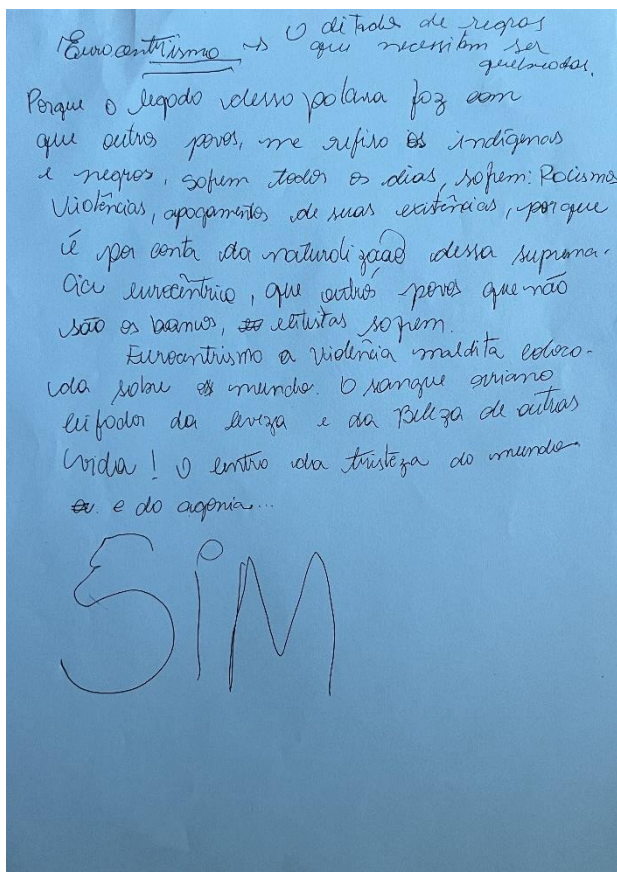 Eurocentrismo → O ditador de regras
que necessitam ser
quebradas.
Porque o legado dessa palavra faz com
que outros povos, me refiro os indígenas
e negros, sofrem todos os dias, sofrem: Racismo
Violências, apagamentos de suas existências, porque
é por conta da naturalização dessa suprema-
cia eurocêntrica, que outros povos que não
são os brancos, elitistas sofrem.
Eurocentrismo a violência maldita coloca-
da sobre o mundo. O sangue ariano
ceifador da leveza e da Beleza de outras
vida! O centro da tristeza do mundo
e do agonia...
SIM